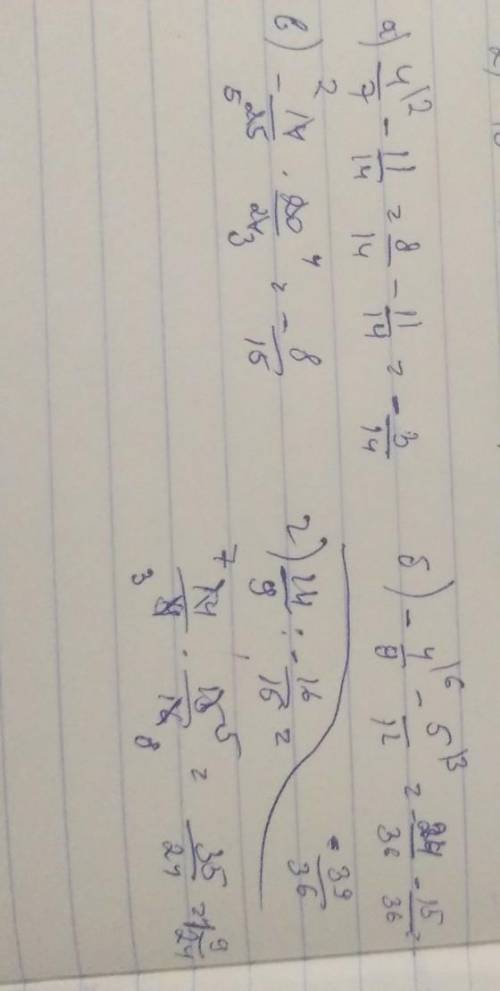 а) 4\2/7 - 11/14 = 8/14 - 11/14 = - 3/14
б) - 4\6/9 - 5\3/12 = - 24/36 - 15/36 =
- 39/36
в) - 14 2/25 5 · 20 4/21 3 = - 8/15
г) 14/9 : - 16/15 =
7 14/9 3 · 15 5/16 8 = 35/24 = 1 9/24